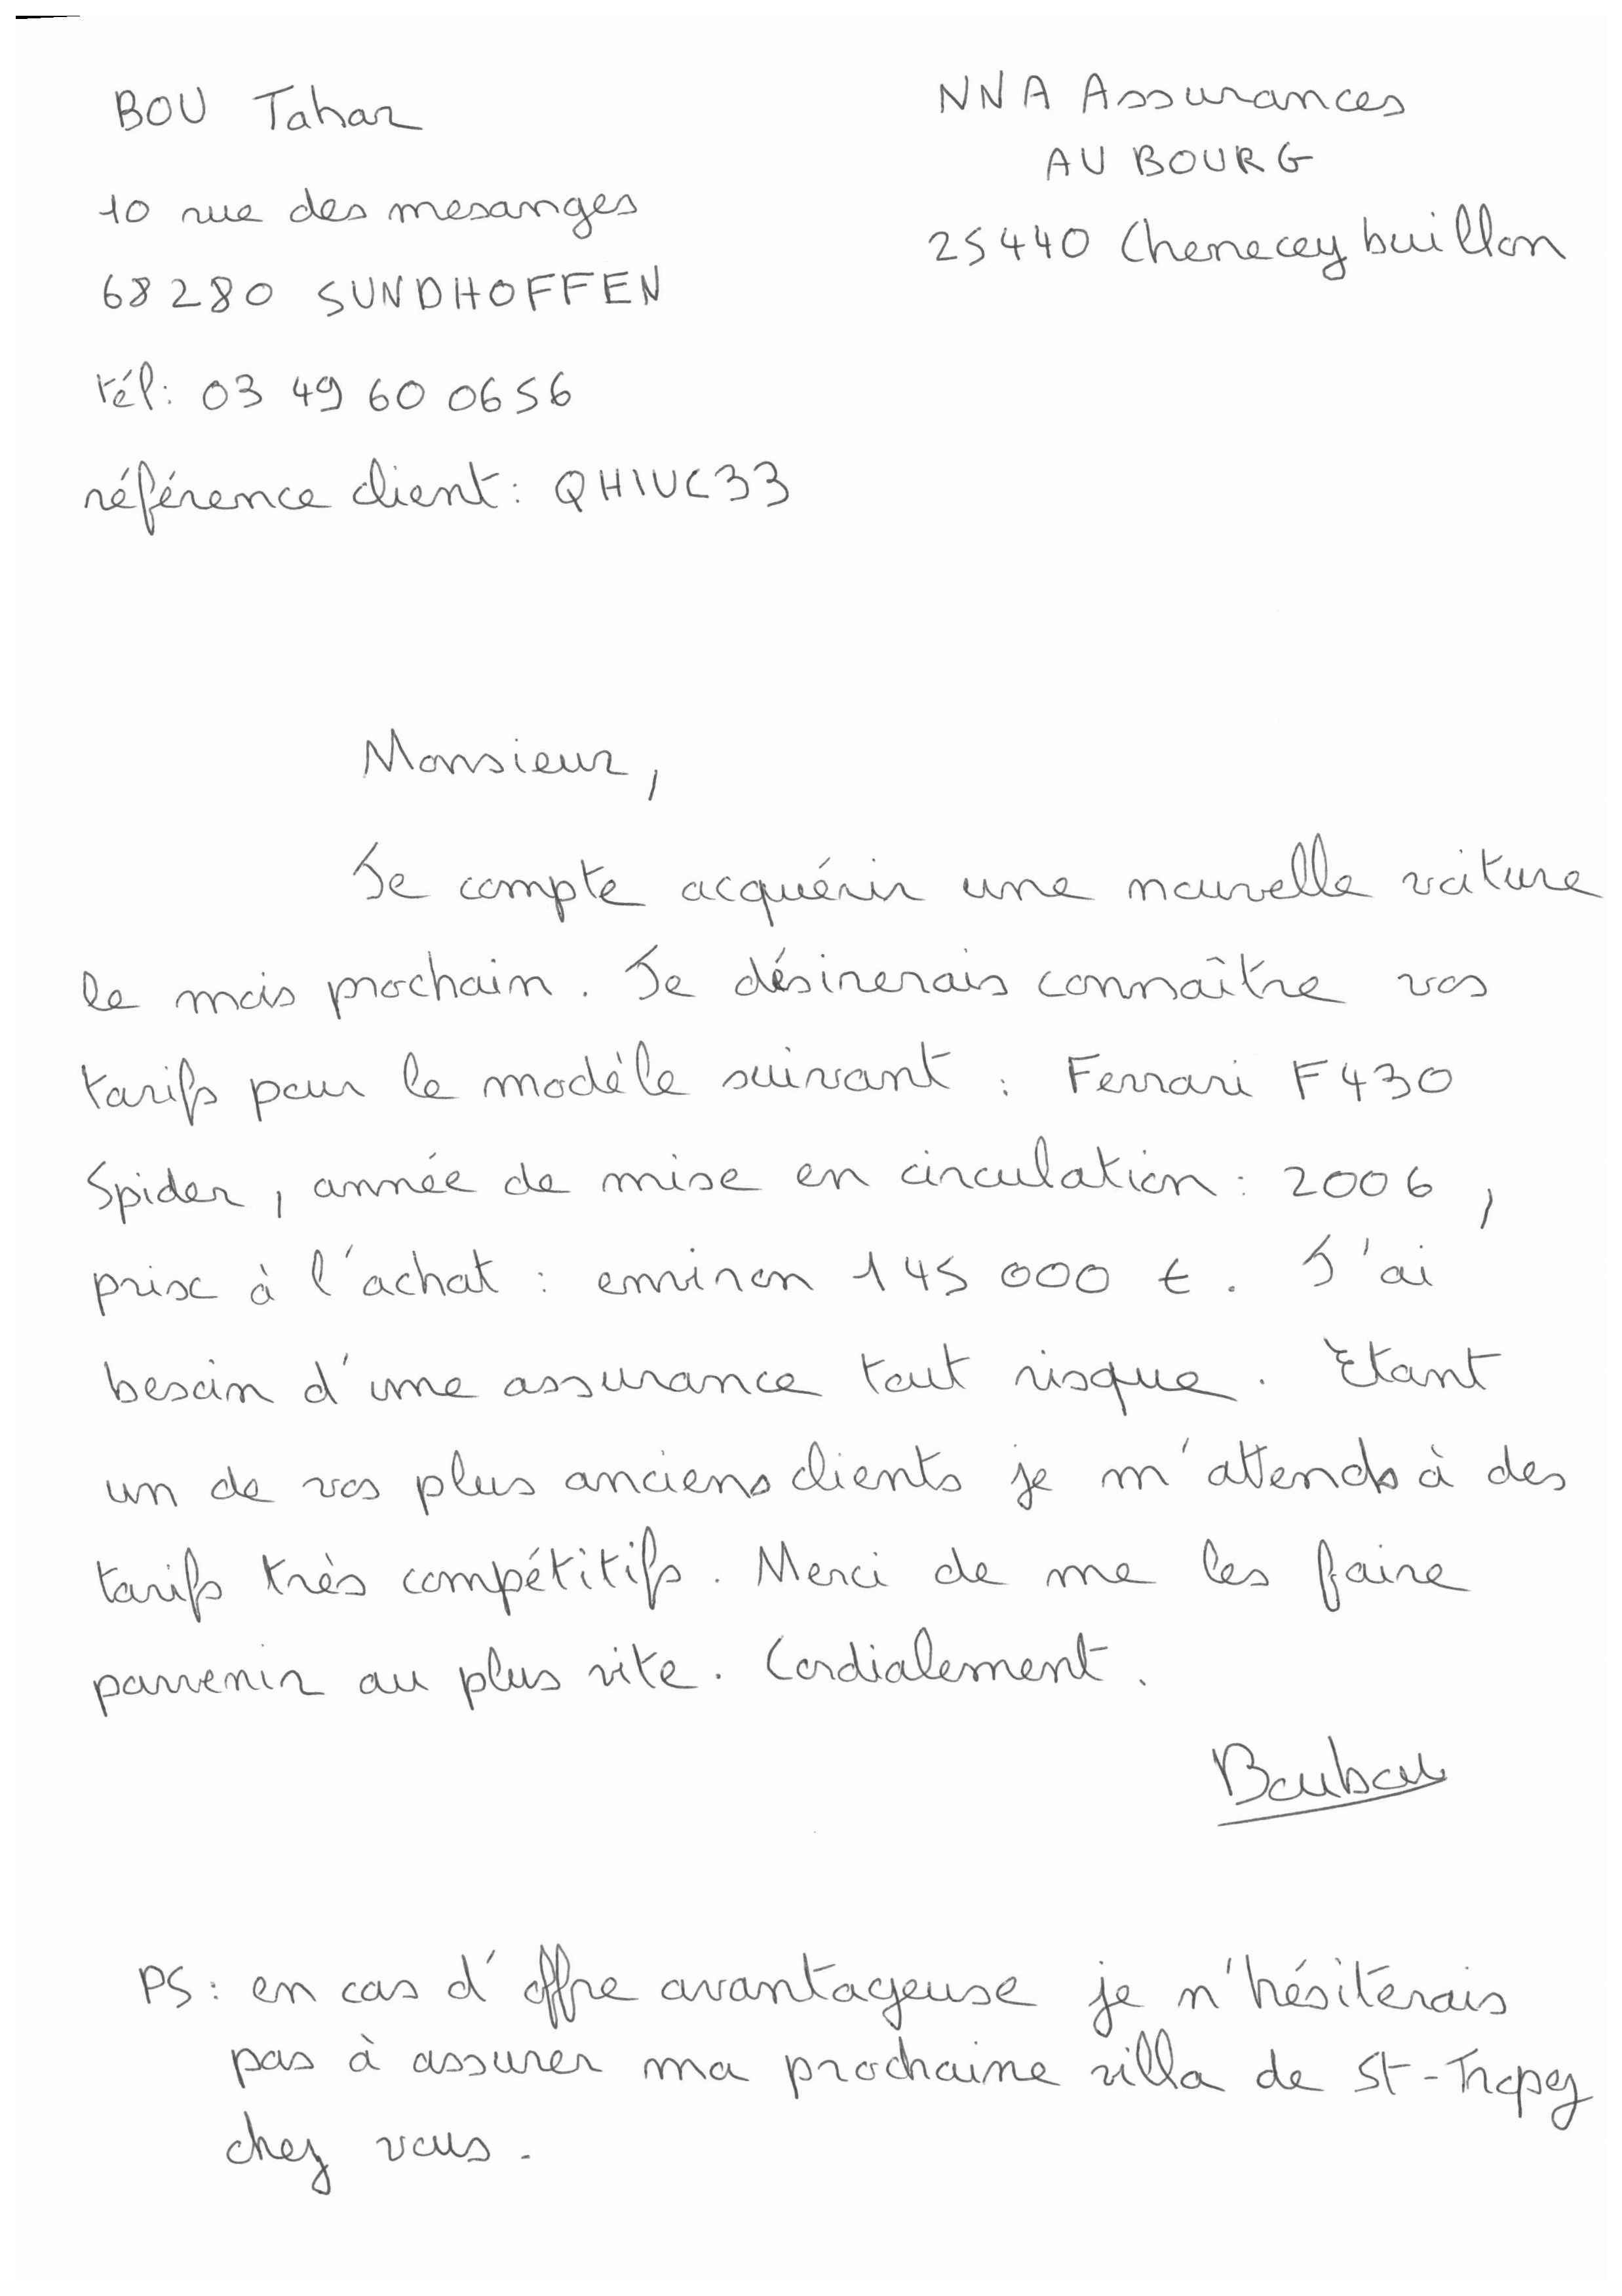 BOU Tahar
10 rue des mesanges
68280 SUNDHOFFEN
tél: 03 49 60 06 56
référence client: QHIUC33
NNA Assurances
AU BOURG
25440 Chenecey buillon
Monsieur,
Je compte acquérir une nouvelle voiture
le mois prochain. Je désirerais connaître vos
tarifs pour le modèle suivant : Ferrari F430
Spider, année de mise en circulation : 2006,
prix à l'achat : environ 145 000 €. J'ai
besoin d'une assurance tout risque. Etant
un de vos plus anciens clients je m'attends à des
tarifs très compétitifs. Merci de me les faire
parvenir au plus vite. Cordialement.
Boubou
PS: en cas d'offre avantageuse je n'hésiterais
pas à assurer ma prochaine villa de St-Tropez
chez vous.